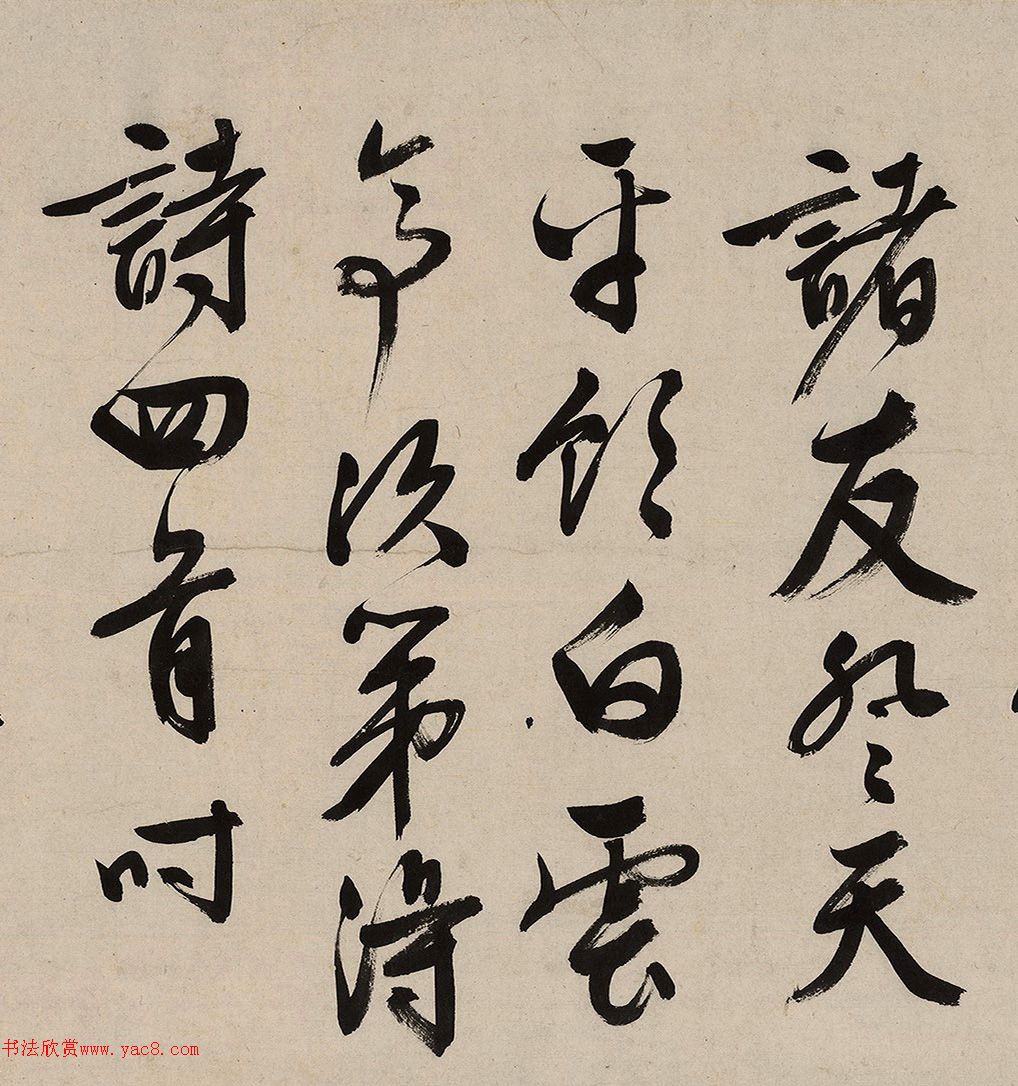 諸友登天
平飲白雲
亭次第得
詩四首時
书法欣赏www.yac8.com